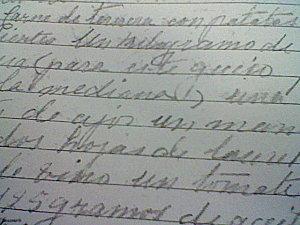 Carne de ternera con patatas
Un kilogramo de
(para este guiso
la mediana (1) una
de ajos un man
dos hojas de laure
de vino un tomate
175 gramos de acei